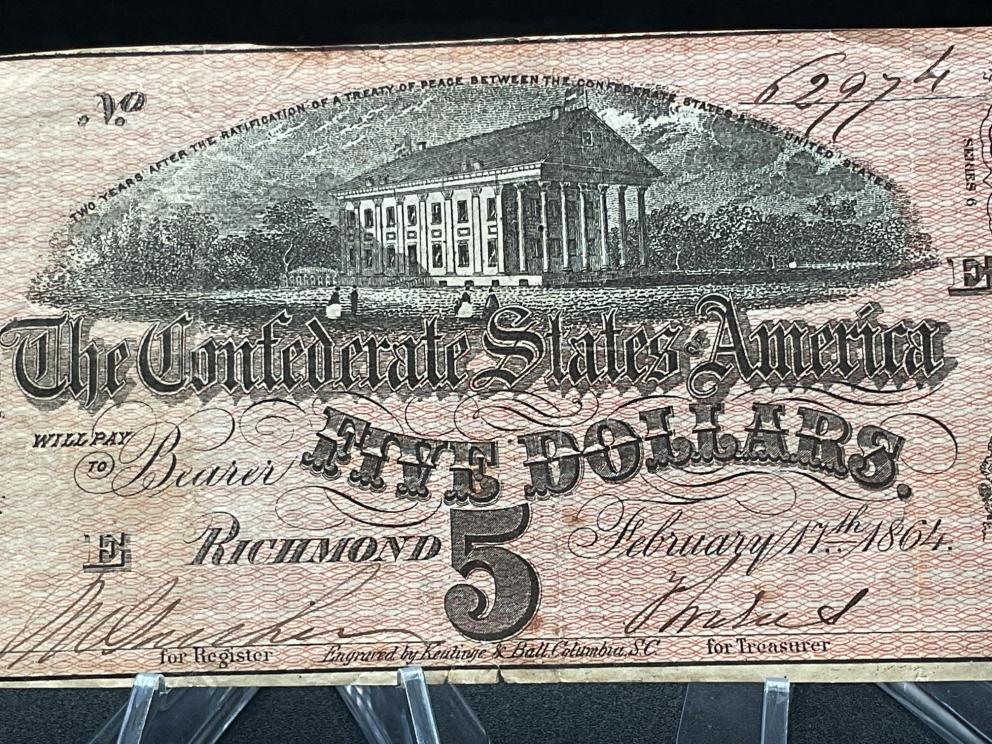 TWO YEARS AFTER THE RATIFICATION OF A TREATY OF PEACE BETWEEN THE CONFEDERATE STATES & THE UNITED STATES
No 62974
SERIES 6
The Confederate States of America
WILL PAY
TO Bearer
FIVE DOLLARS.
E RICHMOND 5 February 17th 1864.
for Register Engraved by Keatinge & Ball Columbia, S.C for Treasurer